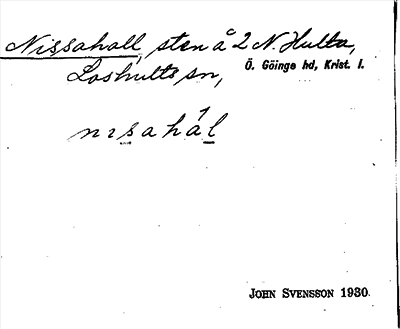 Nissahall, sten å 2 N. Hulta,
Loshults sn, Ö. Göinge hd, Krist. l.
nısahál
JOHN SVENSSON 1930.